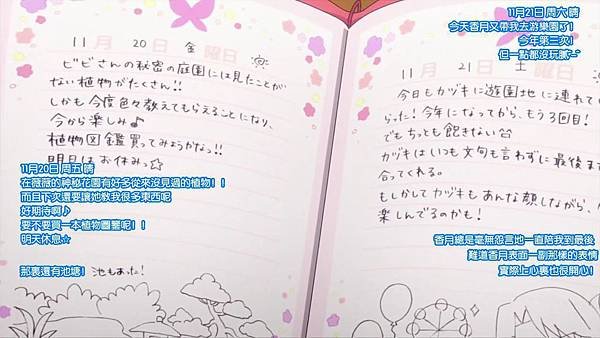 11月 20日 金曜日
ビビさんの秘密の庭園には見たことが
ない植物がたくさん!!
しかも今度色々教えてもらえることになり、
今から楽しみ♪
植物図鑑買ってみようかなっ!!
明日はお休みっ☆
11月20日 周五 晴
在薇薇的神秘花園有好多從來沒見過的植物！！
而且下次還要讓她教我很多東西呢
好期待啊♪
要不要買一本植物圖鑒呢！！
明天休息☆
那裏還有池塘！
池もあった!
11月21日 周六 晴
今天香月又帶我去游樂園了！
今年第三次！
但一點都沒玩膩~
11月 21日 土曜
今日もカヅキに遊園地に連れて
らった!今年になってから、もう3回目!
でもちっとも飽きない
カヅキはいつも文句も言わずに最後ま
合ってくれる。
もしかしてカヅキもあんな顔しながら、
楽しんでるのかも!
香月總是毫無怨言地一直陪我到最後
難道香月表面一副那樣的表情
實際上心裏也很開心！